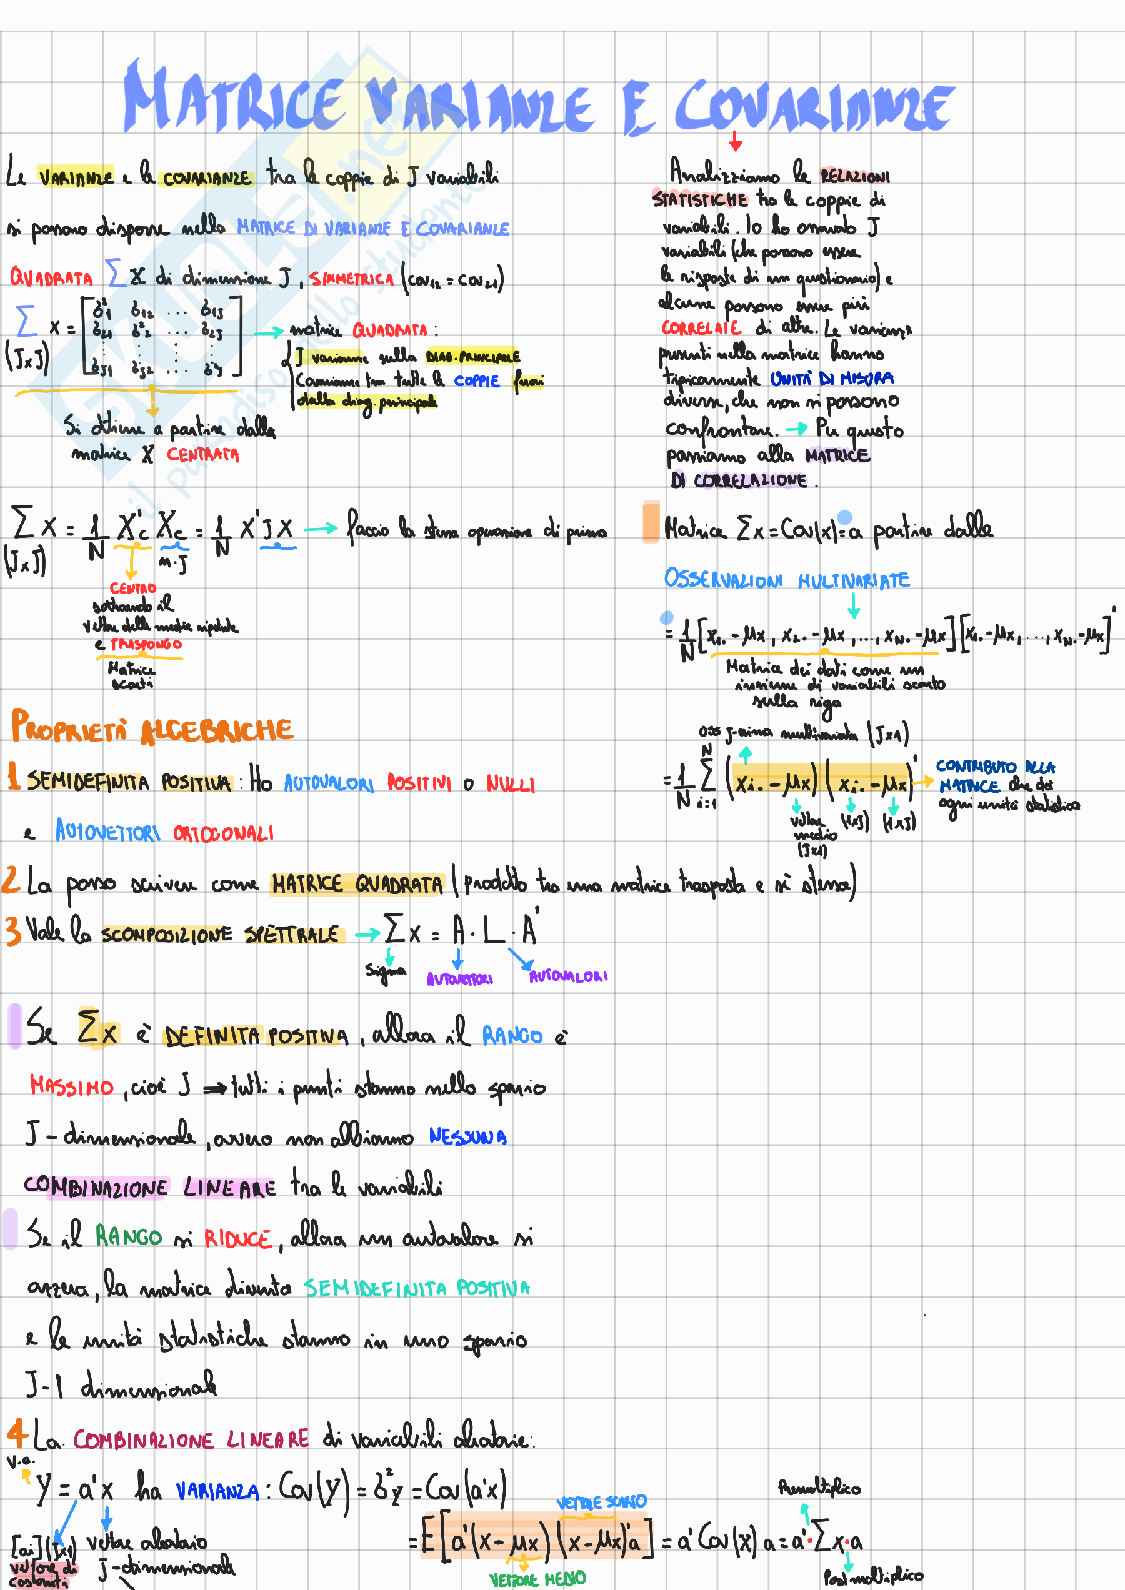 MATRICE VARIANZE E COVARIANZE
Le VARIANZE e le COVARIANZE tra le coppie di J variabili
si possono disporre nella MATRICE DI VARIANZE E COVARIANZE
QUADRATA Σ X di dimensione J, SIMMETRICA (cov₁₂ = cov₂₁)
Σ X = [σ²1 σ12 ... σ1J
σ21 σ²2 ... σ2J
⋮ ⋮ ⋮
σJ1 σJ2 ... σ²J]
(JxJ)
→ matrice QUADRATA:
J varianze sulla DIAG. PRINCIPALE
Covarianze tra tutte le COPPIE fuori
dalla diag. principale
Si ottiene a partire dalla
matrice X CENTRATA
Analizziamo le RELAZIONI
STATISTICHE tra le coppie di
variabili. Io ho osservato J
variabili (che possono essere
le risposte di un questionario) e
alcune possono essere più
CORRELATE di altre. Le varianze
presenti nella matrice hanno
tipicamente UNITÀ DI MISURA
diverse, che non si possono
confrontare. → Per questo
passiamo alla MATRICE
DI CORRELAZIONE.
Σ X = 1/N X'c Xc = 1/N X'JX → faccio la stessa operazione di prima
(JxJ)
n·J
CENTRO
sottraendo il
vettore delle medie ripetute
e TRASPONGO
Matrice
scarti
Matrice Σx = Cov(x) = a partire dalle
OSSERVAZIONI MULTIVARIATE
= 1/N [x1. - μx, x2. - μx, ..., xN. - μx] [x1. - μx, ..., xN. - μx]'
Matrice dei dati come un
insieme di variabili scarto
sulla riga
oss j-esima multivariata (Jx1)
= 1/N Σ i=1 N (xi. - μx) (xi. - μx)' → CONTRIBUTO ALLA
MATRICE che dà
ogni unità statistica
vettore
medio
(Jx1)
(1xJ)
PROPRIETÀ ALGEBRICHE
1 SEMIDEFINITA POSITIVA: Ho AUTOVALORI POSITIVI o NULLI
e AUTOVETTORI ORTOGONALI
2 La posso scrivere come MATRICE QUADRATA (prodotto tra una matrice trasposta e sé stessa)
3 Vale la SCOMPOSIZIONE SPETTRALE → Σ X = A · L · A'
Sigma
AUTOVETTORI
AUTOVALORI
Se Σx è DEFINITA POSITIVA, allora il RANGO è
MASSIMO, cioè J ⇒ tutti i punti stanno nello spazio
J-dimensionale, ovvero non abbiamo NESSUNA
COMBINAZIONE LINEARE tra le variabili
Se il RANGO si RIDUCE, allora un autovalore si
azzera, la matrice diventa SEMIDEFINITA POSITIVA
e le unità statistiche stanno in uno spazio
J-1 dimensionale
4 La COMBINAZIONE LINEARE di variabili aleatorie:
v.a.
Y = a'x ha VARIANZA: Cov(Y) = σ²Y = Cov(a'x)
= E[a'(x-μx) (x-μx)'a] = a' Cov(x) a = a'·Σx·a
VETTORE SCARTO
VETTORE MEDIO
Premoltiplico
Postmoltiplico
[ai] (Jx1)
vettore di
costanti
vettore aleatorio
J-dimensionale